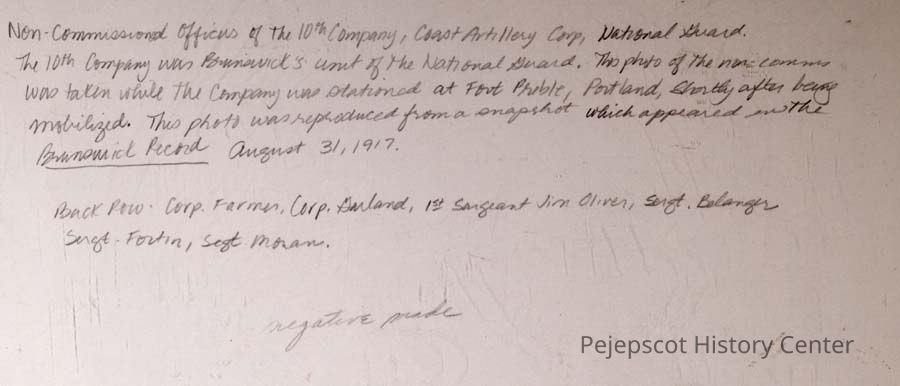 Non-Commissioned Officers of the 10th Company, Coast Artillery Corp, National Guard.
The 10th Company was Brunswick's unit of the National Guard. This photo of the non-comms
was taken while the Company was stationed at Fort Preble, Portland, shortly after being
mobilized. This photo was reproduced from a snapshot which appeared in the
Brunswick Record August 31, 1917.
Back Row - Corp. Farmer, Corp. Garland, 1st Sargeant Jim Oliver, Sergt. Belanger
Sergt. Fortin, Segt Moran.
negative made
Pejepscot History Center